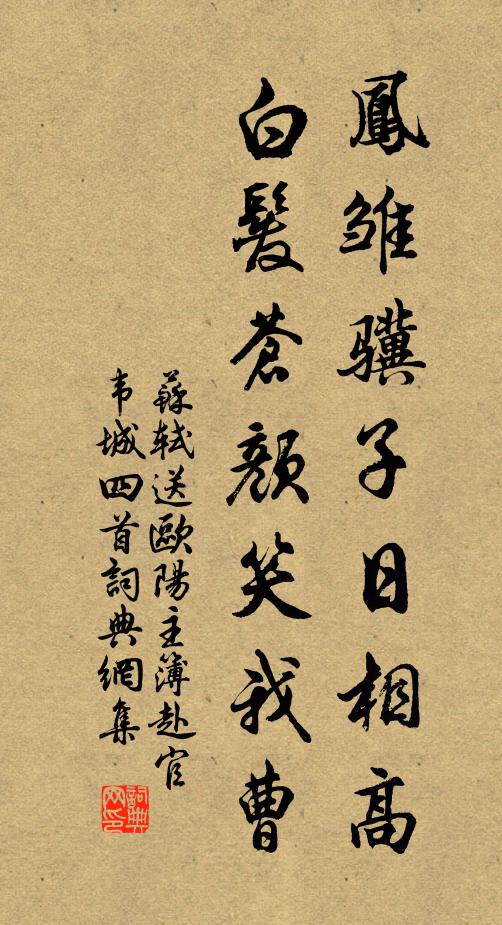 鳳雛驥子日相高
白髮蒼顏笑我曹
蘇軾送歐陽主簿赴官
韦城四首詞典網集
詞典
网印